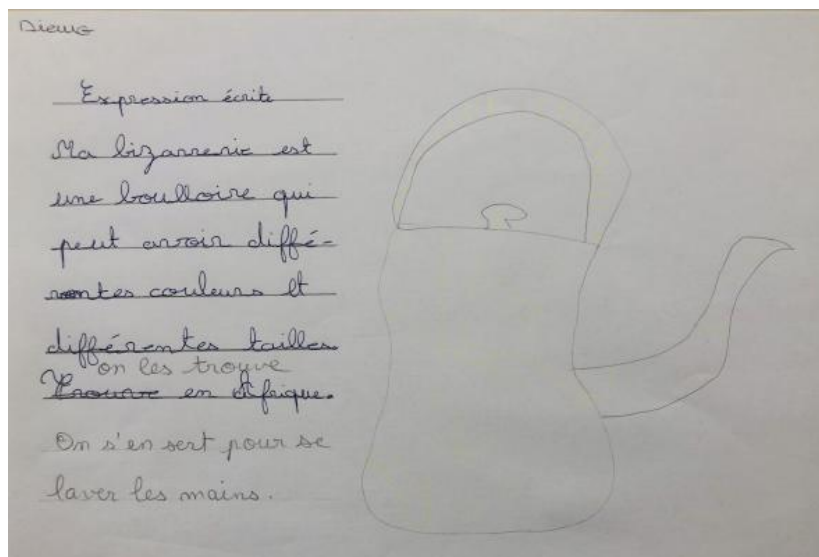 Dieng
Expression écrite
Ma bizarrerie est
une boulloire qui
peut avoir diffé-
rentes couleurs et
différentes tailles.
on les trouve
Trouve en Afrique.
On s'en sert pour se
laver les mains.